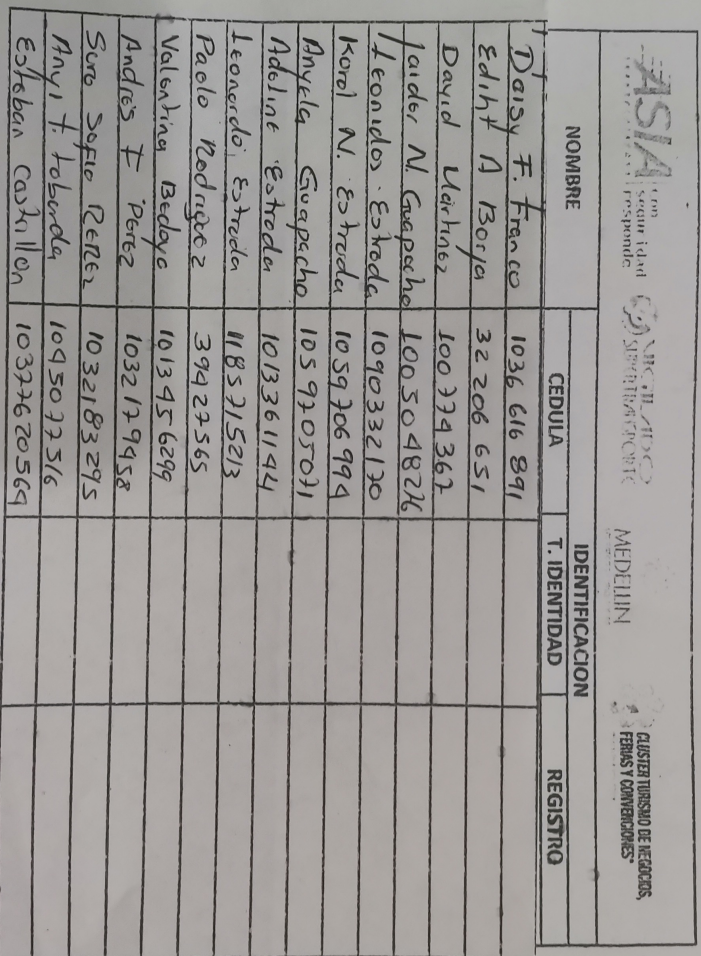 ASIA con seguridad responde VIGILADO SUPERTRANSPORTE MEDELLIN CLUSTER TURISMO DE NEGOCIOS, FERIAS Y CONVENCIONES*
IDENTIFICACION
NOMBRE CEDULA T. IDENTIDAD REGISTRO
Daisy F. Franco 1036 616 891
Ediht A Borja 32 206 651
David Martinez 100 774 367
Jaider N. Guapacho 1005048276
Leonidos Estrada 1090332170
Karol N. Estrada 1059706994
Anyela Guapacho 1059705071
Adaline Estrada 1013361144
Leonardo Estrada 1185715213
Paola Rodriguez 39427565
Valentina Bedoya 1013456299
Andres F Perez 1032179458
Sara Sofia Perez 1032183295
Anyi t. taborda 1045077516
Esteban Castrillon 10377620564